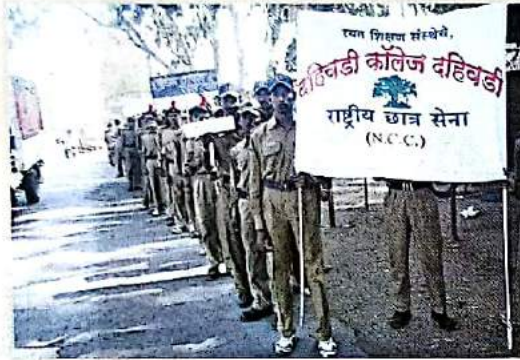 रयत शिक्षण संस्थेचे,
दहिवडी कॉलेज दहिवडी
राष्ट्रीय छात्र सेना
(N.C.C.)